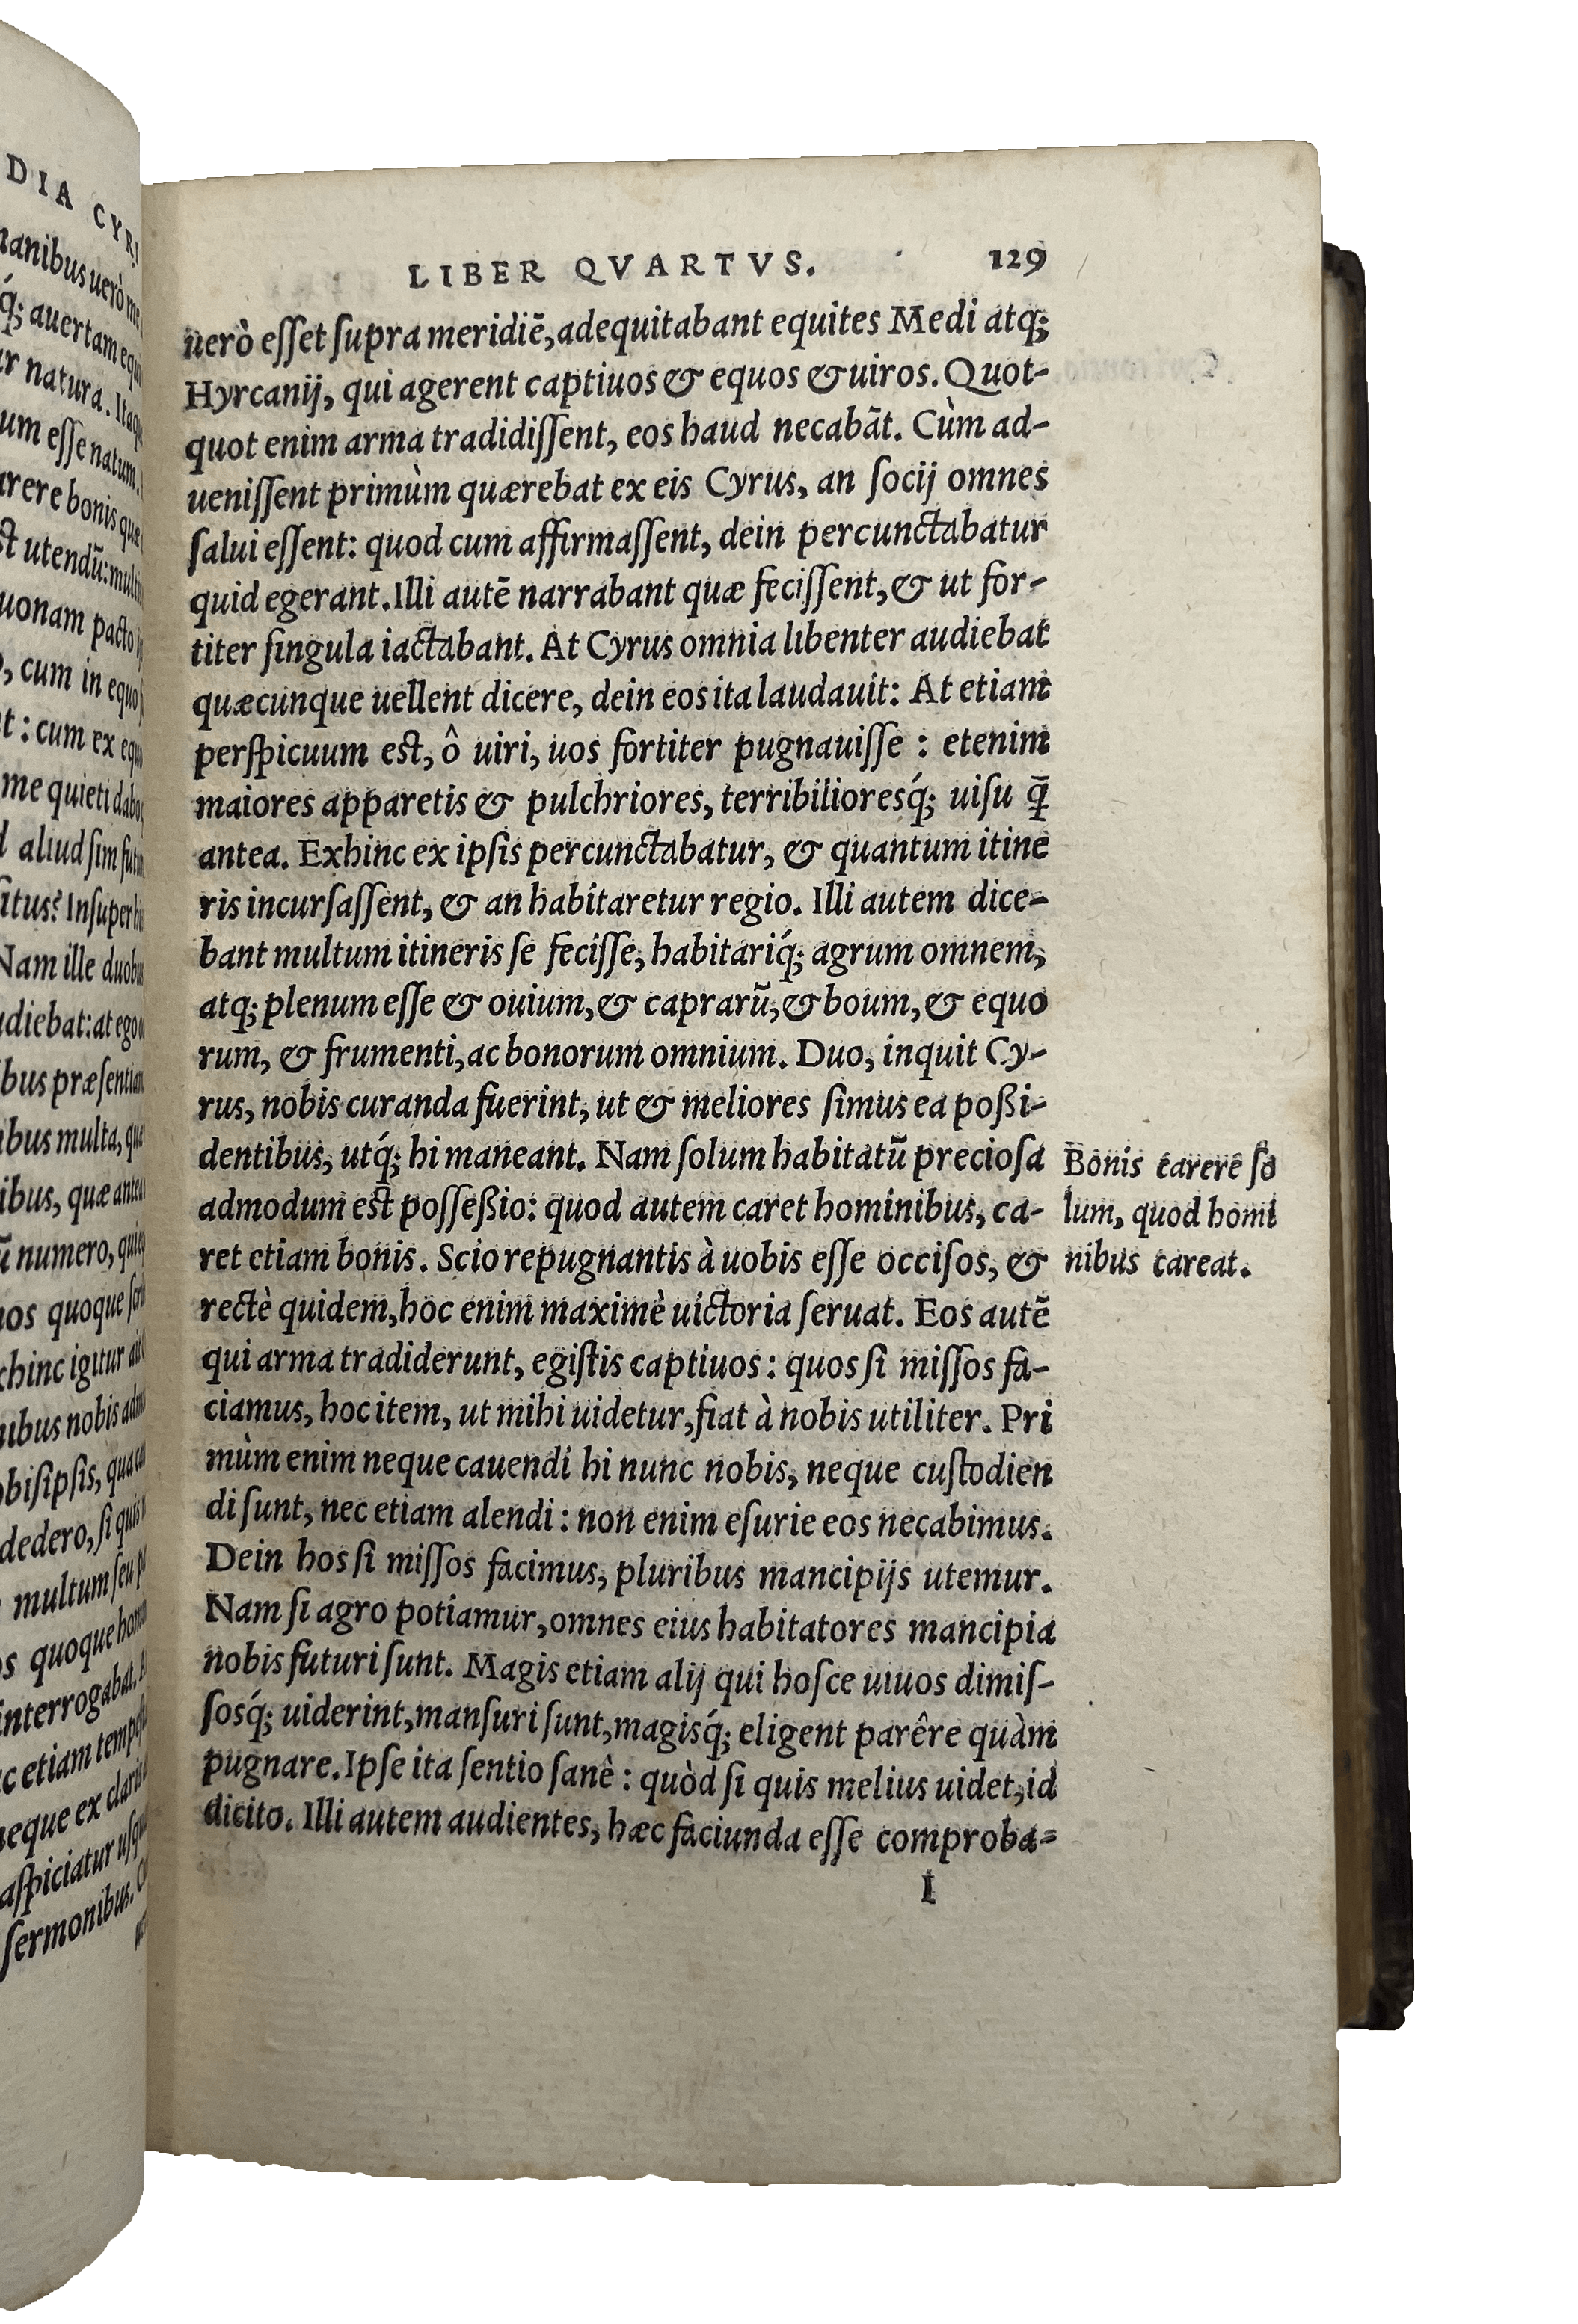 DIA CYRI
manibus uerò me
q́; auertam equ
r natura. Itaq
um esse natum.
arere bonis quæ
st utendũ: mult
uonam pacto
, cum in equo
t: cum ex equ
me quieti dabo
d aliud sim fut
situs? Insuper
Nam ille duob
udiebat: at ego
bus præsenti
ibus multa, qu
ibus, quæ ante
ũ numero, qui
nos quoque
xhinc igitur
nibus nobis
obis ipsis, qua
dedero, si quis
multum seu
os quoque
interrogabat.
c etiam
neque ex
aspiciatur
sermonibus.
LIBER QVARTVS. 129
uerò eſſet ſupra meridiẽ, adequitabant equites Medi atq;
Hyrcanij, qui agerent captiuos & equos & uiros. Quot-
quot enim arma tradidiſſent, eos haud necabãt. Cùm ad-
ueniſſent primùm quærebat ex eis Cyrus, an ſocij omnes
ſalui eſſent: quod cum affirmaſſent, dein percunctabatur
quid egerant. Illi autẽ narrabant quæ feciſſent, & ut for-
titer ſingula iactabant. At Cyrus omnia libenter audiebat
quæcunque uellent dicere, dein eos ita laudauit: At etiam
perſpicuum eſt, ô uiri, uos fortiter pugnauiſſe: etenim
maiores apparetis & pulchriores, terribiliores q́; uiſu q̃
antea. Exhinc ex ipſis percunctabatur, & quantum itine
ris incurſaſſent, & an habitaretur regio. Illi autem dice-
bant multum itineris ſe feciſſe, habitariq́; agrum omnem,
atq; plenum eſſe & ouium, & caprarũ, & boum, & equo
rum, & frumenti, ac bonorum omnium. Duo, inquit Cy-
rus, nobis curanda fuerint, ut & meliores ſimus ea poßi-
dentibus, utq́; hi maneant. Nam ſolum habitatũ precioſa
admodum eſt poſſeßio: quod autem caret hominibus, ca-
ret etiam bonis. Scio repugnantis à uobis eſſe occiſos, &
rectè quidem, hoc enim maximè uictoria ſeruat. Eos autẽ
qui arma tradiderunt, egiſtis captiuos: quos ſi miſſos fa-
ciamus, hoc item, ut mihi uidetur, fiat à nobis utiliter. Pri
mùm enim neque cauendi hi nunc nobis, neque cuſtodien
di ſunt, nec etiam alendi: non enim eſurie eos necabimus.
Dein hos ſi miſſos facimus, pluribus mancipijs utemur.
Nam ſi agro potiamur, omnes eius habitatores mancipia
nobis futuri ſunt. Magis etiam alij qui hoſce uiuos dimiſ-
ſosq́; uiderint, manſuri ſunt, magisq́; eligent parêre quàm
pugnare. Ipſe ita ſentio ſanè: quòd ſi quis melius uidet, id
dicito. Illi autem audientes, hæc faciunda eſſe comproba-
I
Bonis carere ſo
lum, quod homi
nibus careat.